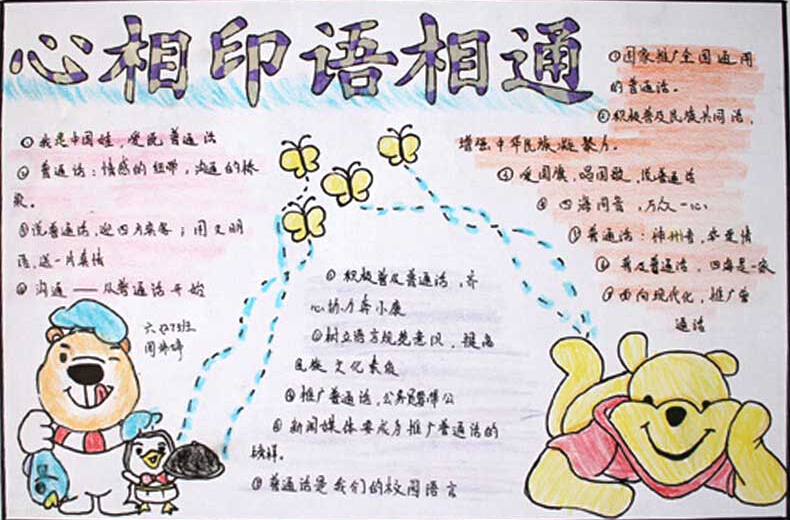 心相印语相通
①我是中国娃，爱说普通话
②普通话：情感的纽带，沟通的桥
梁。
③说普通话，迎四方宾客；用文明
语，送一片真情
④沟通——从普通话开始
六（2）班
①国家推广全国通用
的普通话。
②积极普及民族共同语，
增强中华民族凝聚力。
爱国旗，唱国歌，说普通话
四海同音，万众一心
普通话：神州音，华夏情
普及普通话，四海是一家
面向现代化，推广普
通话
①积极普及普通话，齐
心协力奔小康
②树立语言规范意识，提高
民族文化素质
③推广普通话，公务员要带
④新闻媒体要成为推广普通话的
榜样。
⑤普通话是我们的校园语言